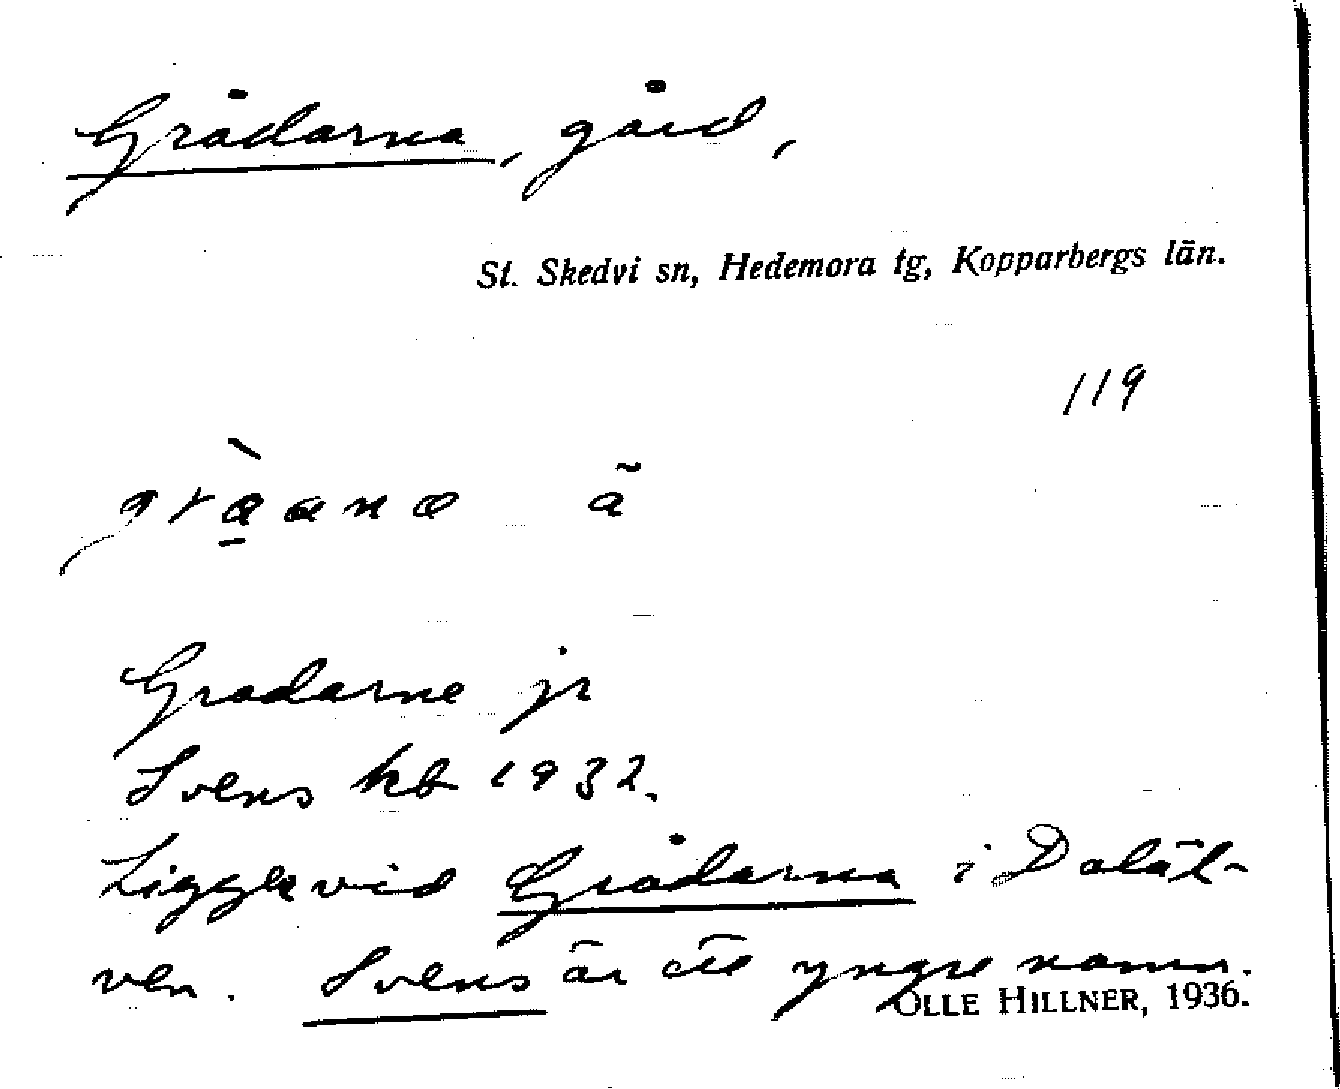 Grådarna, gård,
St. Skedvi sn, Hedemora tg, Kopparbergs län.
119
ã
Gradarne jr
Svens kb 1932.
Ligger vid Grådarna i Daläl-
ven. Svens är ett yngre namn.
OLLE HILLNER, 1936.